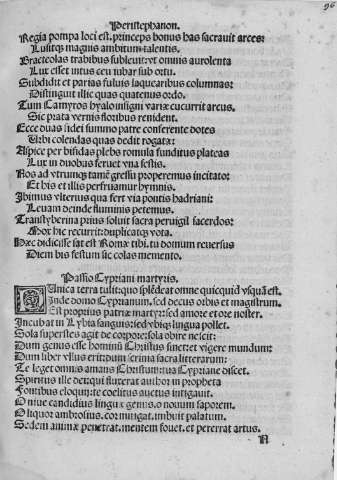 96
Peristephanon.
Regia pompa loci est. princeps bonus has sacrauit arces:
Lusitq; magnis ambitum talentis.
Bracteolas trabibus subleuit: vt omnis aurolenta
Lux esset intus ceu iubar sub ortu.
Subdidit et parias fuluis laquearibus columnas:
Distinguit illic quas quaternus ordo.
Tum camyros hyalo insigni varie cucurrit arcus.
Sic prata vernis floribus renident.
Ecce duas fidei summo patre conferente dotes
Urbi colendas quas dedit togatæ:
Aspice per bifidas plebs romula funditur plateas
Lux in duobus feruet vna festis.
Nos ad vtrumq; tamē gressu properemus incitato:
Et his et illis perfruamur hymnis.
Ibimus vlterius qua fert via pontis hadriani:
Leuam deinde fluminis petemus.
Transtyberina prius soluit sacra peruigil sacerdos:
Mox huc recurrit: duplicatq; vota.
Hæc didicisse sat est Romæ tibi. tu domum reuersus
Diem bis festum sic colas memento.
Passio Cypriani martyris.
Punica terra tulit quo splēdeat omne quicquid vsquā est.
Inde domo Cyprianum. sed decus orbis et magistrum.
Est proprius patriæ martyr: sed amore et ore noster.
Incubat in Lybia sanguis: sed vbiq; lingua pollet.
Sola superstes agit de corpore: sola obire nescit:
Dum genus esse hominū Christus sinet: et vigere mundum:
Dum liber vllus erit: dum scrinia sacra litterarum:
Te leget omnis amans Christum: tua Cypriane discet.
Spiritus ille dei: qui fluxerat auctor in prophetas
Fontibus eloquii: te coelitus auctus irrigauit.
O niue candidius linguæ genus. o nouum saporem.
O liquor ambrosius. cor mitigat. imbuit palatum.
Sedem animæ penetrat. mentem fouet. et pererrat artus.
N